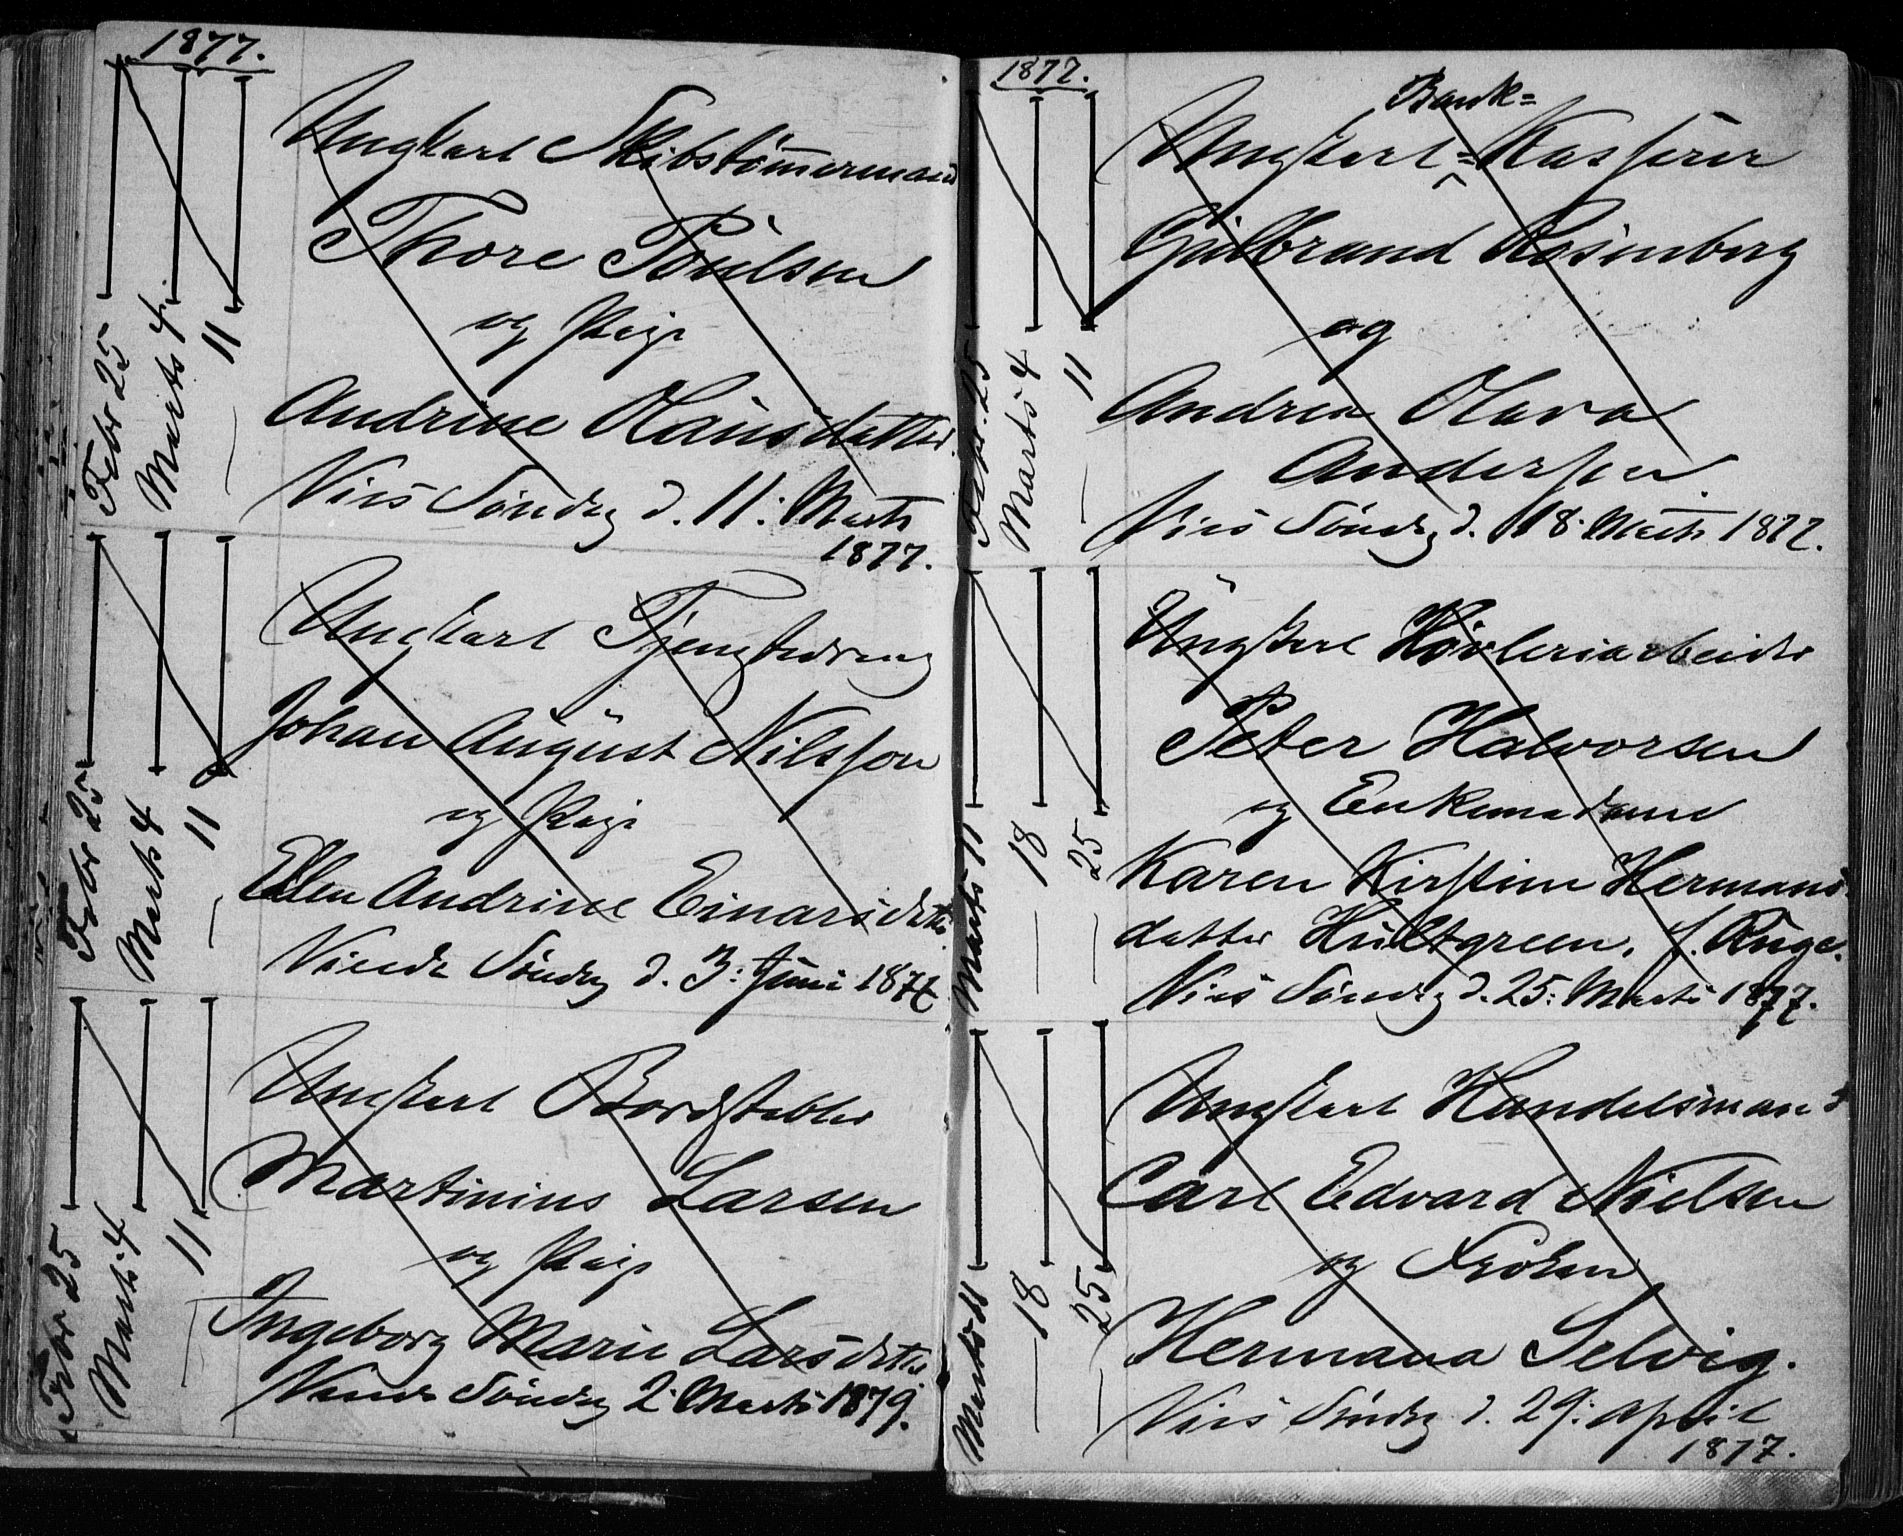 1877.
Febr 25
Marts 4
11
Ungkarl Skibstömmermand
Thore Poulsen
og Pige
Andrine Olausdatter.
Vies Søndag d. 11: Marts
1877.
Febr 25
Marts 4
11
Ungkarl Tjenestedreng
Johan August Nilsson
og Pige
Ellen Andrine Einarsdatter
Viede Søndag d. 3: Juni 1877
Febr 25
Marts 4
11
Ungkarl Bordstabler
Martinius Larsen
og Pige
Ingeborg Marie Larsdatter
Viede Søndag 2 Marts 1879.
1877.
Febr. 25
Marts 4
11
Bank=
Ungkarl=Kasserer
Gulbrand Rosenberg
og
Andrea Olava
Andersen.
Vies Søndag d. 18. Marts 1877.
Marts 11
18
25
Ungkarl Høvleriarbeider
Peter Halvorsen
og Enkemadame
Karen Kirstine Hermans-
datter Hultgreen, f. Runge.
Vies Søndag d. 25: Marts 1877.
Marts 11
18
25
Ungkarl Handelsmand
Carl Edvard Nielsen
og Frøken
Hermana Selvig.
Vies Søndag d. 29: April
1877.